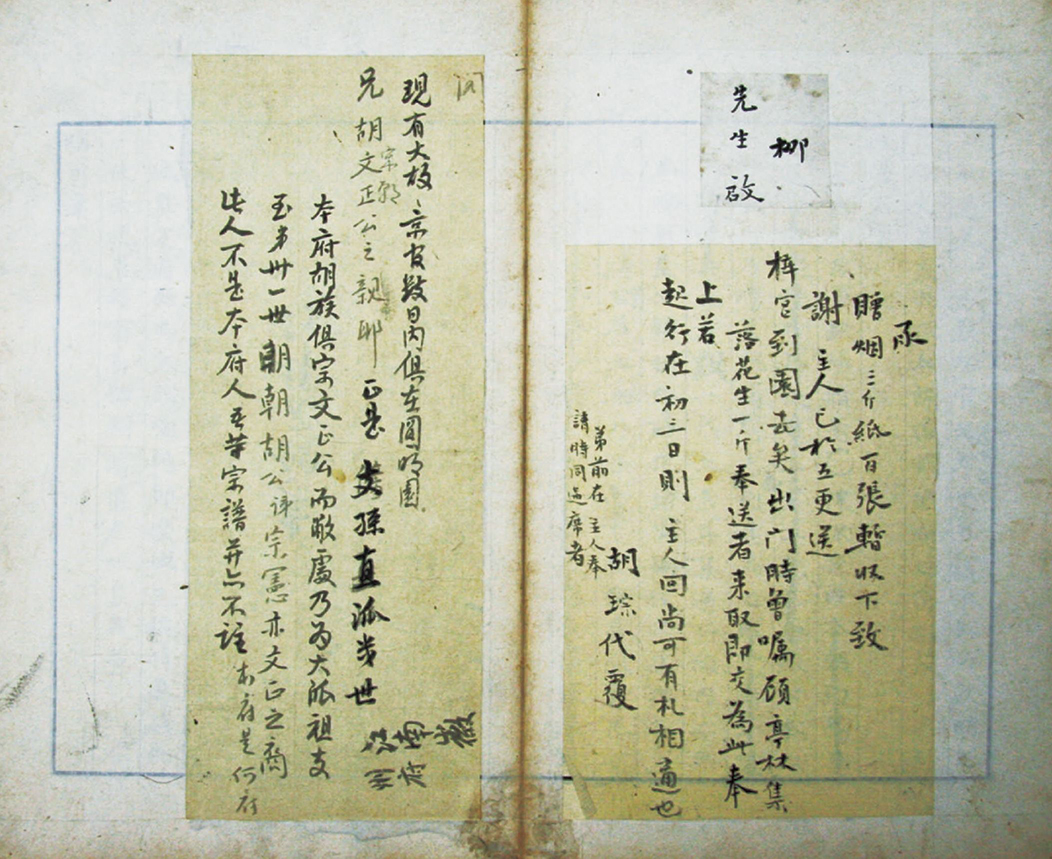 柳
先生啟
承
贈烟三斤紙百張暫收下致
謝 主人已於五更送
梓宮到園去矣出門時曾囑顧亭林集
落花生一斤奉送者来取即交為此奉
上若
起行在初三日則 主人回尚可有札相通也
胡琮代覆
弟前在 主人奉
請時同過席者
問
現有大故 京官數日內俱在圓明園
兄胡文正公之親耶 正是 文孫直派 世
宗
本府胡族俱宗文正公而敝處乃為大派祖支
至弟卅一世 朝 胡公諱宗憲亦文正之裔
此人不是本府人吾等宗譜并亦不註 本府是何府
安徽